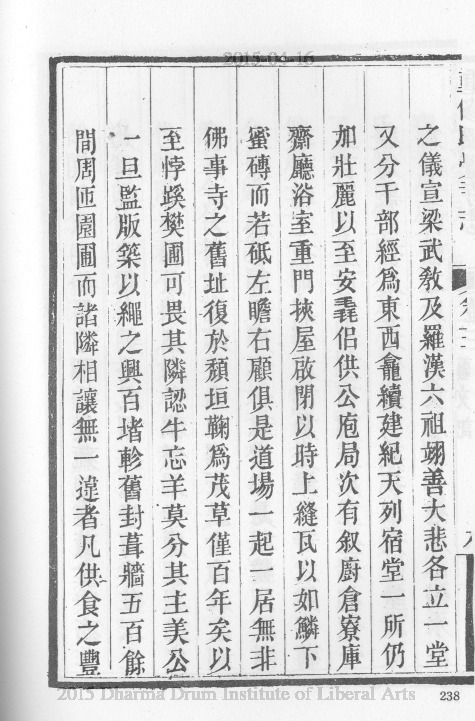 2015-04-16
之儀宣梁武教及羅漢六祖翊善大悲各立一堂
又分干部經爲東西龕續建紀天列宿堂一所仍
加壯麗以至安毳侶供公庖局次有叙廚倉寮庫
齋廳浴室重門挾屋啟閉以時上縫瓦以如鱗下
蜜磚而若砥左瞻右顧俱是道場一起一居無非
佛事寺之舊址復於頹垣鞠爲茂草僅百年矣以
至悖蹊樊圃可畏其隣認牛忘羊莫分其主美公
一旦監版築以繩之興百堵軫舊封葺牆五百餘
間周匝園圃而諸隣相讓無一違者凡供食之豐
238
2015 Dharma Drum Institute of Liberal Arts